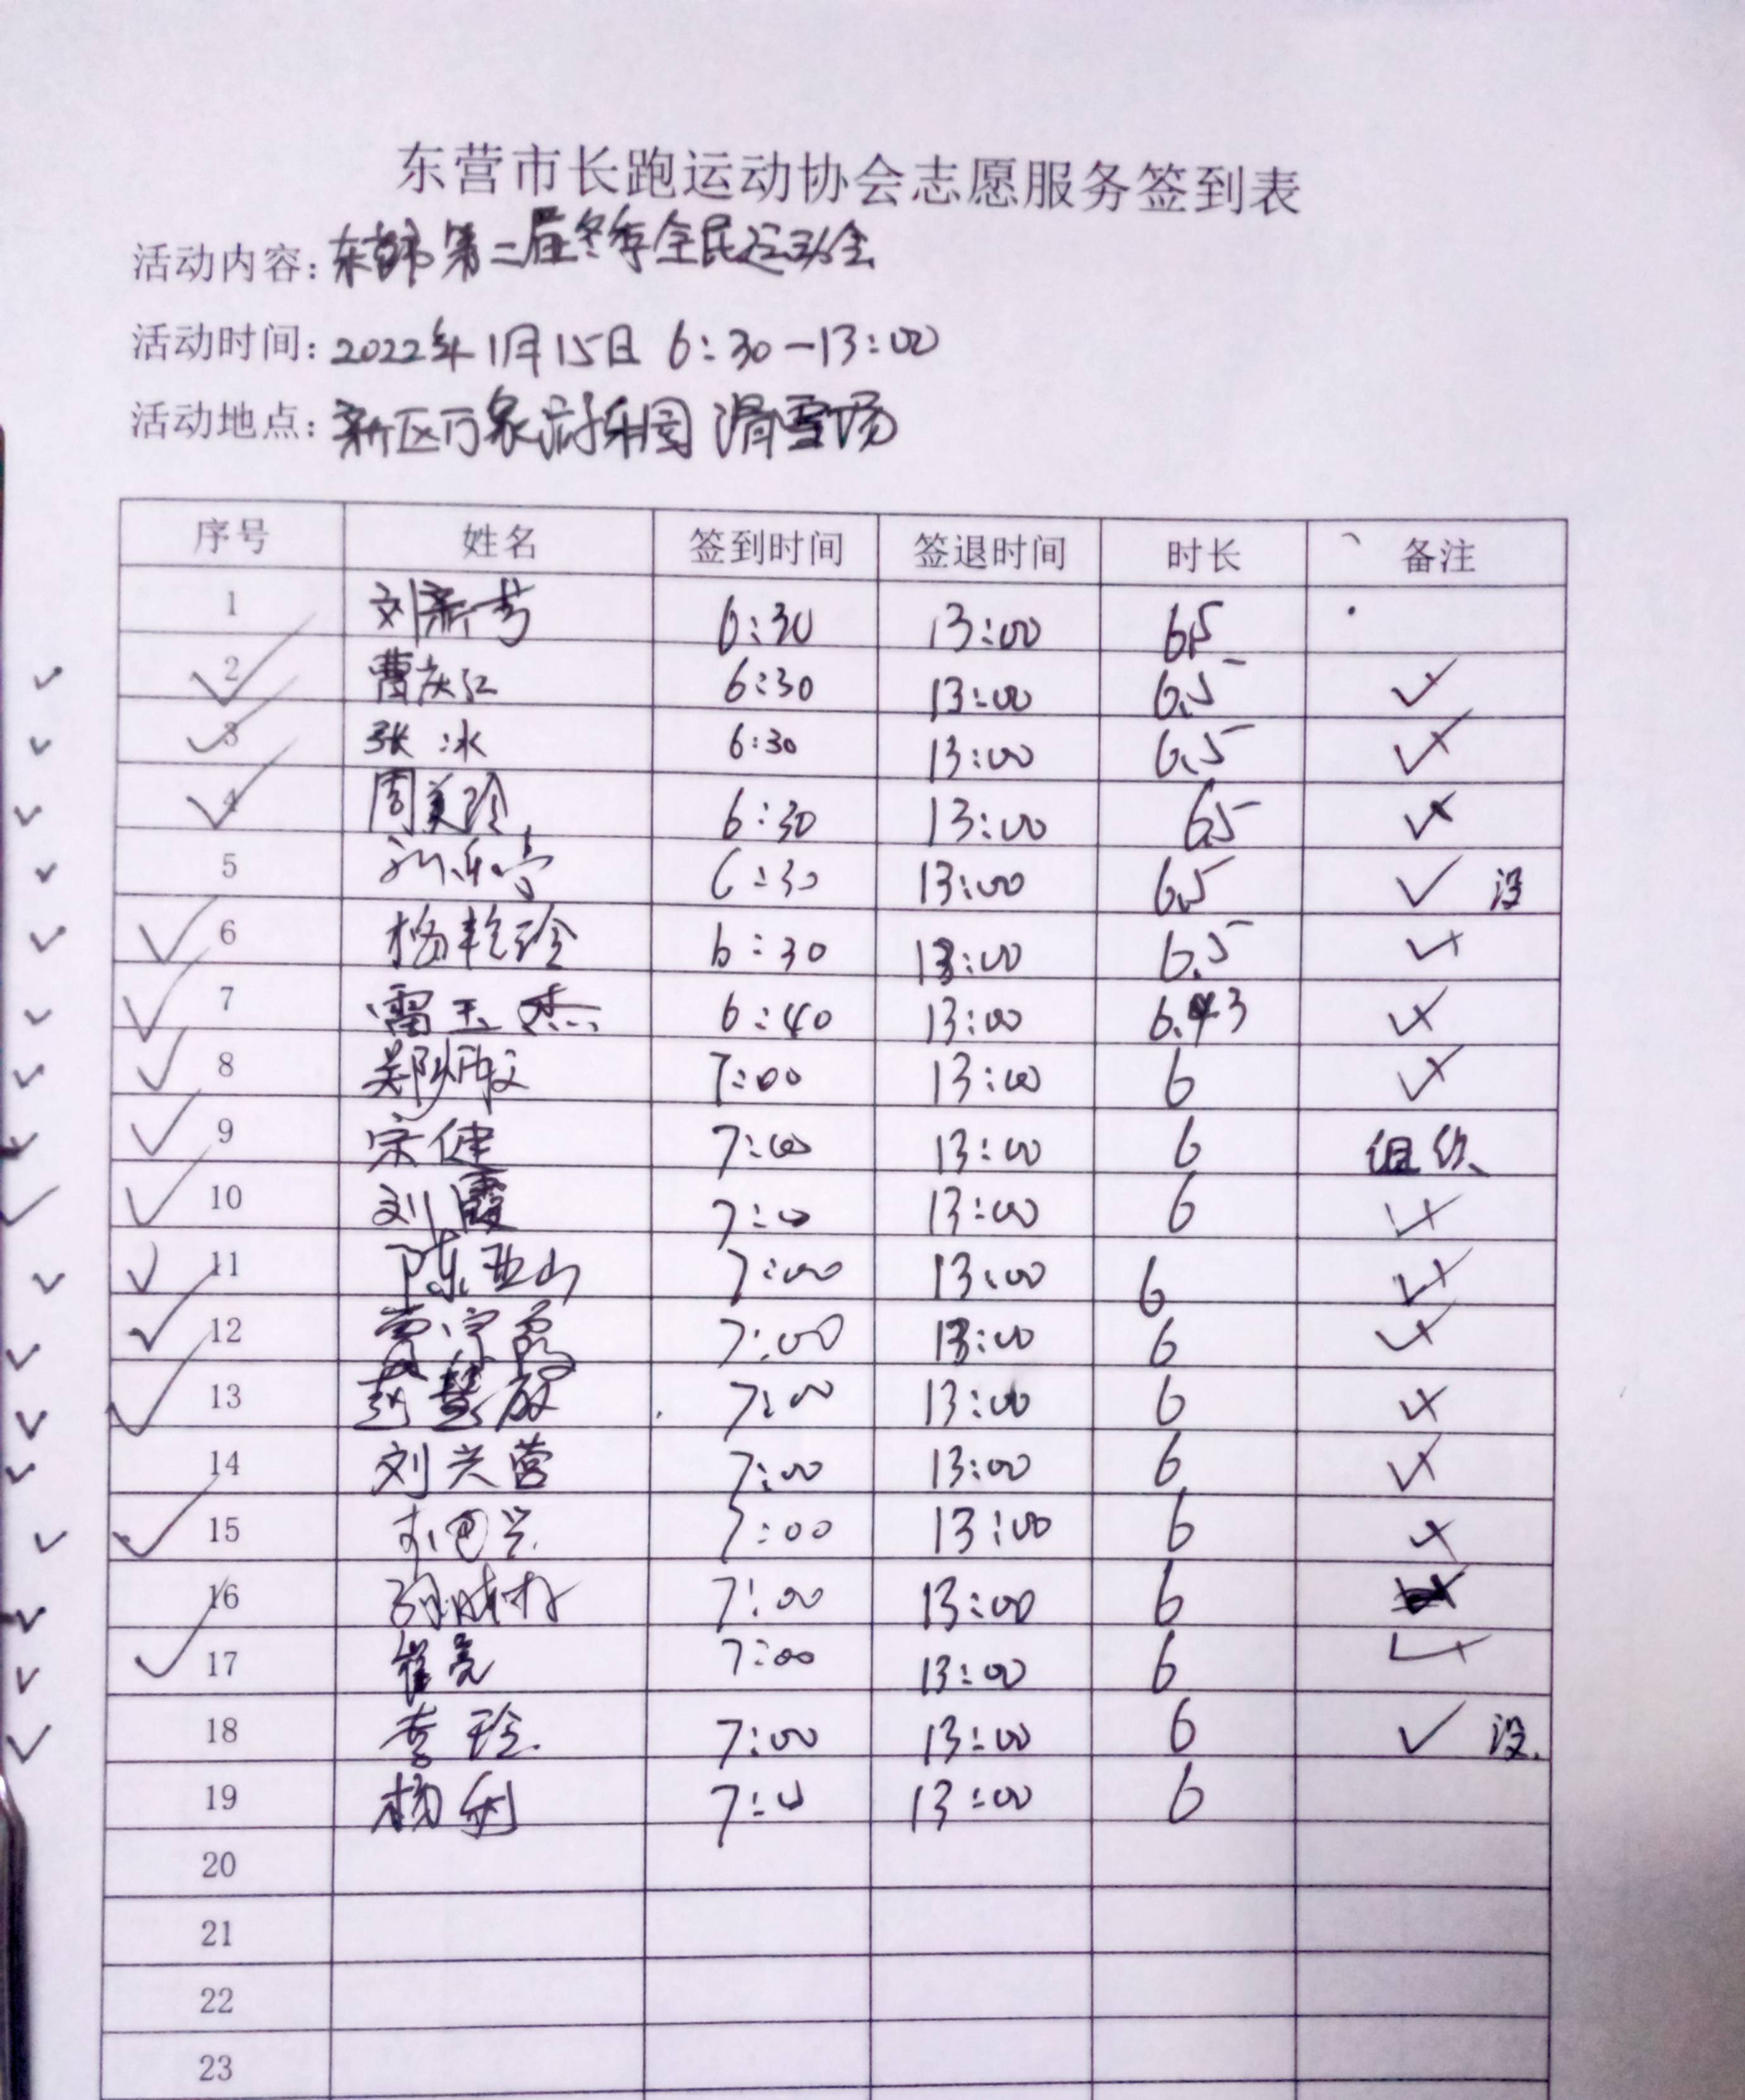 东营市长跑运动协会志愿服务签到表
活动内容：东营市第二届冬季全民运动会
活动时间：2022年1月15日 6:30-13:00
活动地点：新区万象游乐园 滑雪场
序号 姓名 签到时间 签退时间 时长 备注
1 刘新芳 6:30 13:00 6.5
2 曹庆红 6:30 13:00 6.5 ✓
3 张冰 6:30 13:00 6.5 ✓
4 周美玲 6:30 13:00 6.5 ✓
5 6:30 13:00 6.5 ✓ 没
6 杨艳玲 6:30 13:00 6.5 ✓
7 雷玉杰 6:40 13:00 6.43 ✓
8 7:00 13:00 6 ✓
9 宋健 7:00 13:00 6 组织
10 刘霞 7:00 13:00 6 ✓
11 陈亚山 7:00 13:00 6 ✓
12 7:00 13:00 6 ✓
13 7:00 13:00 6 ✓
14 刘兴营 7:00 13:00 6 ✓
15 7:00 13:00 6 ✓
16 7:00 13:00 6
17 崔亮 7:00 13:00 6 ✓
18 李玲 7:00 13:00 6 ✓ 没
19 杨利 7:00 13:00 6
20
21
22
23